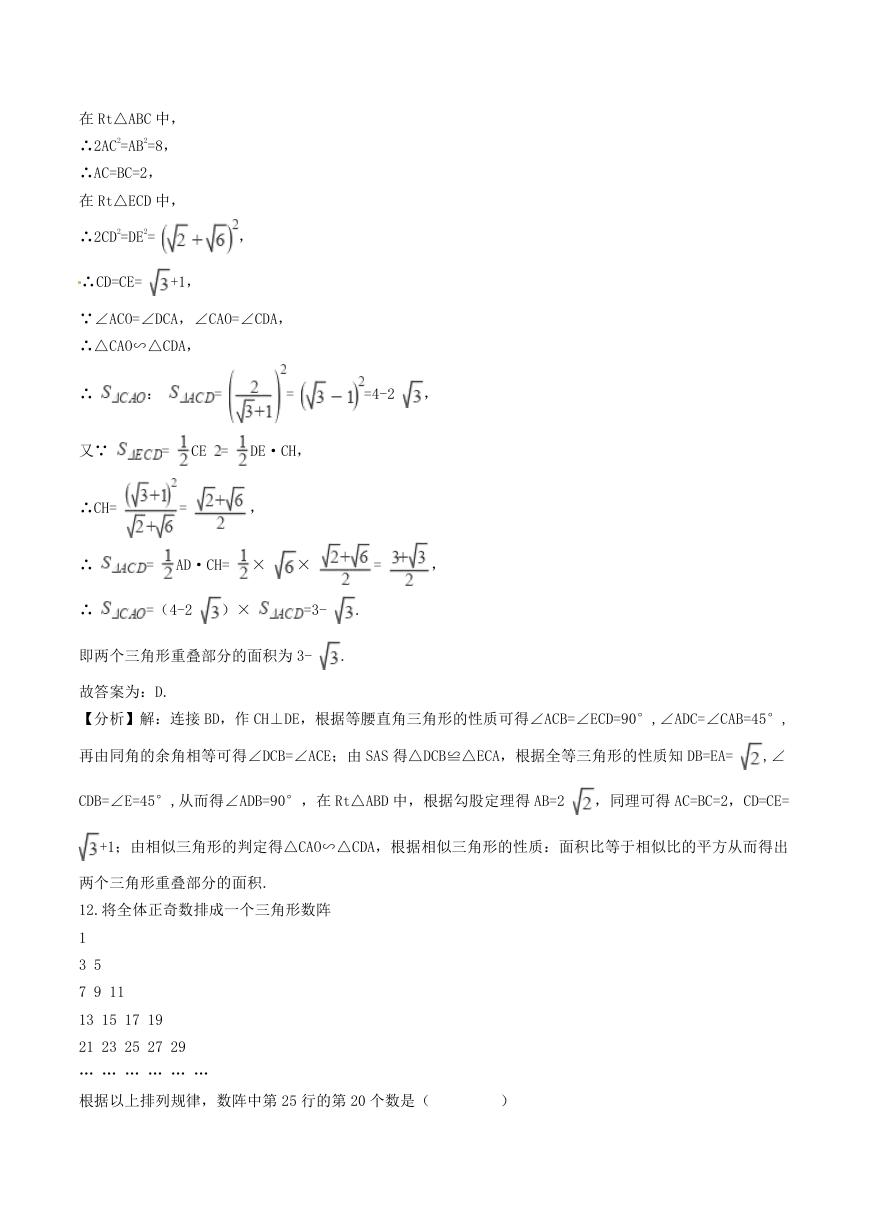 在 Rt△ABC 中，
∴2AC²=AB²=8，
∴AC=BC=2，
在 Rt△ECD 中，
∴2CD²=DE²= (√2+√6)²，
∴CD=CE= √3+1，
∵∠ACO=∠DCA，∠CAO=∠CDA，
∴△CAO∽△CDA，
∴ S△CAO： S△ACD= (2/(√3+1))²= (√3−1)²=4-2 √3，
又∵ S△ECD= 1/2 CE 2= 1/2 DE·CH，
∴CH= (√3+1)²/(√2+√6)= (√2+√6)/2 ，
∴ S△ACD= 1/2 AD·CH= 1/2 × √6 × (√2+√6)/2 = (3+√3)/2 ，
∴ S△CAO=（4-2 √3）× S△ACD=3- √3.
即两个三角形重叠部分的面积为 3- √3.
故答案为：D.
【分析】解：连接 BD，作 CH⊥DE，根据等腰直角三角形的性质可得∠ACB=∠ECD=90°,∠ADC=∠CAB=45°,
再由同角的余角相等可得∠DCB=∠ACE；由 SAS 得△DCB≌△ECA，根据全等三角形的性质知 DB=EA= √2,∠
CDB=∠E=45°,从而得∠ADB=90°，在 Rt△ABD 中，根据勾股定理得 AB=2 √2，同理可得 AC=BC=2，CD=CE=
√3+1；由相似三角形的判定得△CAO∽△CDA，根据相似三角形的性质：面积比等于相似比的平方从而得出
两个三角形重叠部分的面积.
12.将全体正奇数排成一个三角形数阵
1
3 5
7 9 11
13 15 17 19
21 23 25 27 29
… … … … … …
根据以上排列规律，数阵中第 25 行的第 20 个数是（ ）